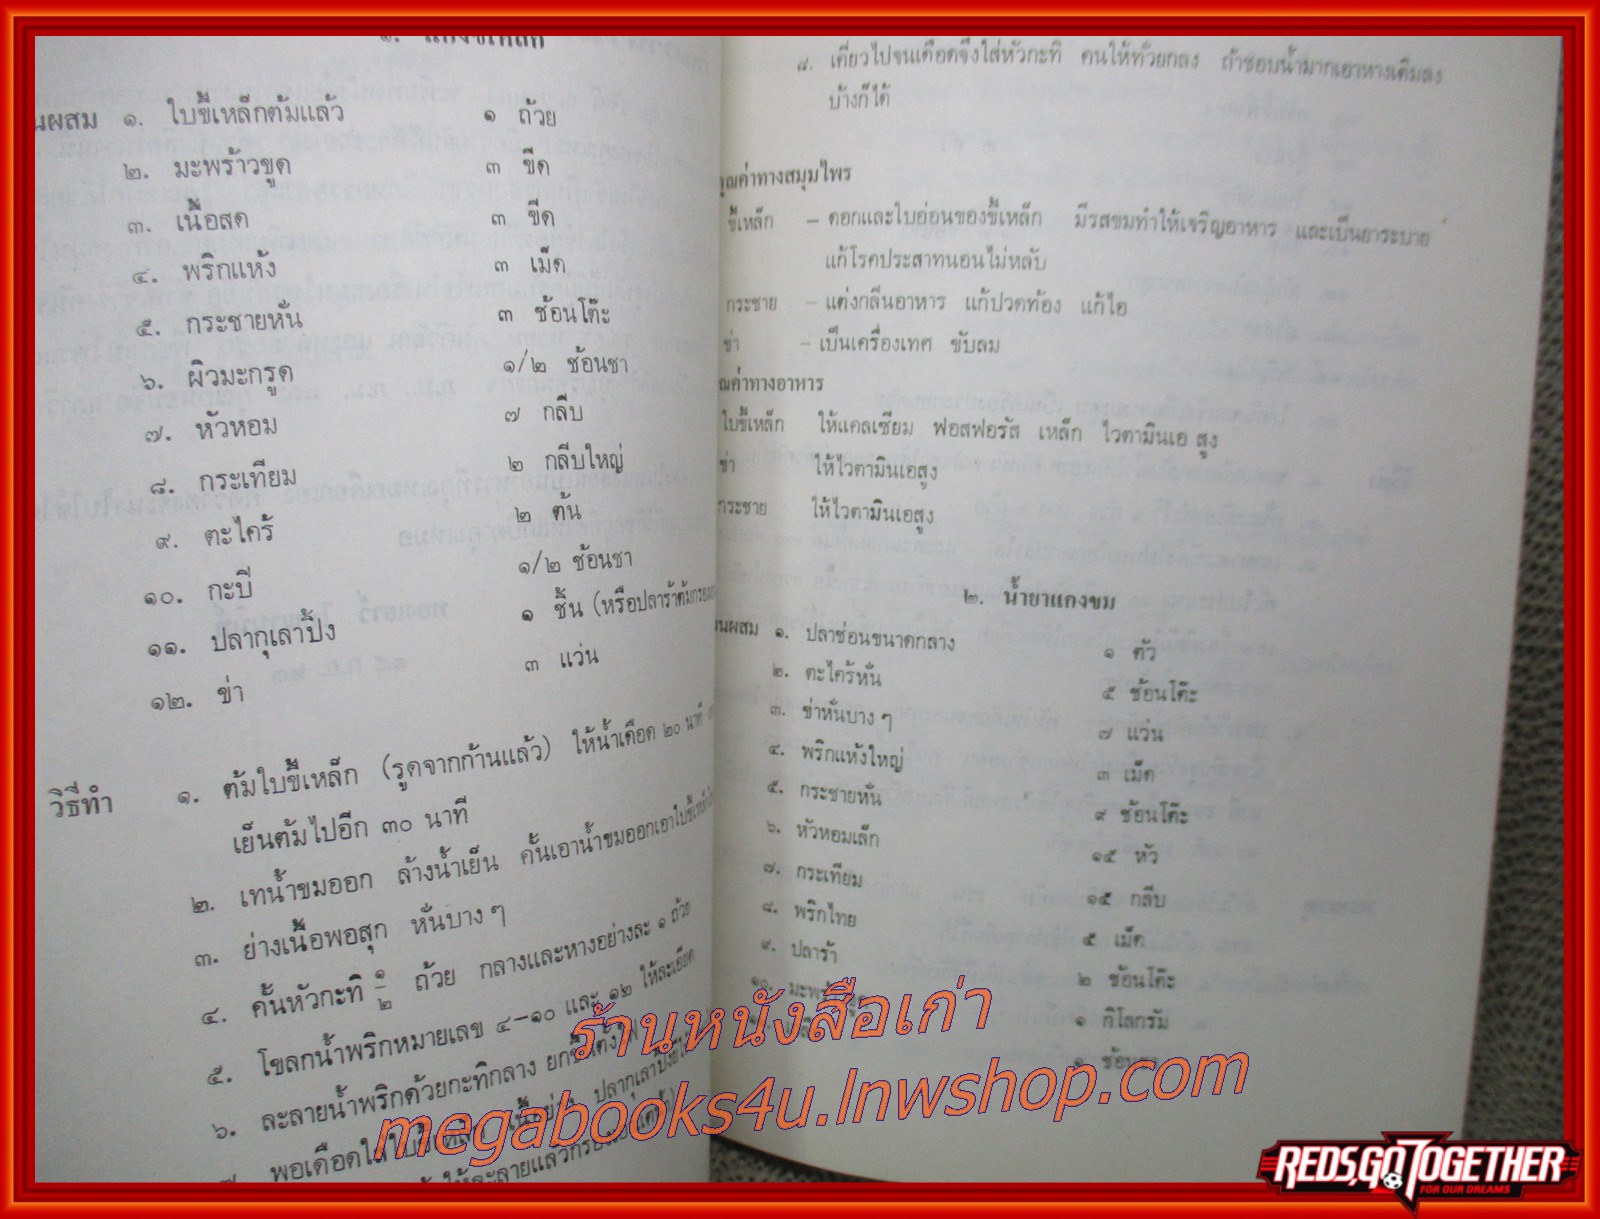 ๑. แกงขี้เหล็ก
นผสม ๑. ใบขี้เหล็กต้มแล้ว ๑ ถ้วย
๒. มะพร้าวขูด ๓ ขีด
๓. เนื้อสด ๓ ขีด
๔. พริกแห้ง ๓ เม็ด
๕. กระชายหั่น ๓ ช้อนโต๊ะ
๖. ผิวมะกรูด ๑/๒ ช้อนชา
๗. หัวหอม ๗ กลีบ
๘. กระเทียม ๒ กลีบใหญ่
๙. ตะไคร้ ๒ ต้น
๑๐. กะปี ๑/๒ ช้อนชา
๑๑. ปลากุเลาปิ้ง ๑ ชิ้น (หรือปลาร้าต้มกรอง
๑๒. ข่า ๓ แว่น
วิธีทำ ๑. ต้มใบขี้เหล็ก (รูดจากก้านแล้ว) ให้น้ำเดือด ๒๐ นาที
เย็นต้มไปอีก ๓๐ นาที
๒. เทน้ำขมออก ล้างน้ำเย็น คั้นเอาน้ำขมออกเอาใบขี้เหล็ก
๓. ย่างเนื้อพอสุก หั่นบางๆ
๔. คั้นหัวกะทิ ๑/๒ ถ้วย กลางและหางอย่างละ ๑ ถ้วย
๕. โขลกน้ำพริกหมายเลข ๔-๑๐ และ ๑๒ ให้ละเอียด
๖. ละลายน้ำพริกด้วยกะทิกลาง ยกขึ้นตั้งไฟ
๗. พอเดือดใส่ใบขี้เหล็ก เนื้อย่าง ปลากุเลาปิ้ง
ให้ละลายแล้วกรอง
๘. เคี่ยวไปจนเดือดจึงใส่หัวกะทิ คนให้ทั่วยกลง ถ้าชอบน้ำมากเอาหางเติมลง
บ้างก็ได้
คุณค่าทางสมุมไพร
ขี้เหล็ก – ดอกและใบอ่อนของขี้เหล็ก มีรสขมทำให้เจริญอาหาร และเป็นยาระบาย
แก้โรคประสาทนอนไม่หลับ
กระชาย – แต่งกลิ่นอาหาร แก้ปวดท้อง แก้ไอ
ข่า – เป็นเครื่องเทศ ขับลม
คุณค่าทางอาหาร
ใบขี้เหล็ก ให้แคลเซียม ฟอสฟอรัส เหล็ก ไวตามินเอ สูง
ข่า ให้ไวตามินเอสูง
กระชาย ให้ไวตามินเอสูง
๒. น้ำยาแกงขม
นผสม ๑. ปลาช่อนขนาดกลาง ๑ ตัว
๒. ตะไคร้หั่น ๕ ช้อนโต๊ะ
๓. ข่าหั่นบางๆ ๗ แว่น
๔. พริกแห้งใหญ่ ๓ เม็ด
๕. กระชายหั่น ๙ ช้อนโต๊ะ
๖. หัวหอมเล็ก ๑๕ หัว
๗. กระเทียม ๑๕ กลีบ
๘. พริกไทย ๕ เม็ด
๙. ปลาร้า ๒ ช้อนโต๊ะ
๑๐. มะพร้าวขูด ๑ กิโลกรัม
๑ ช้อนชา
ร้านหนังสือเก่า
megabooks4u.lnwshop.com
REDS,GO TOGETHER
FOR OUR DREAMS